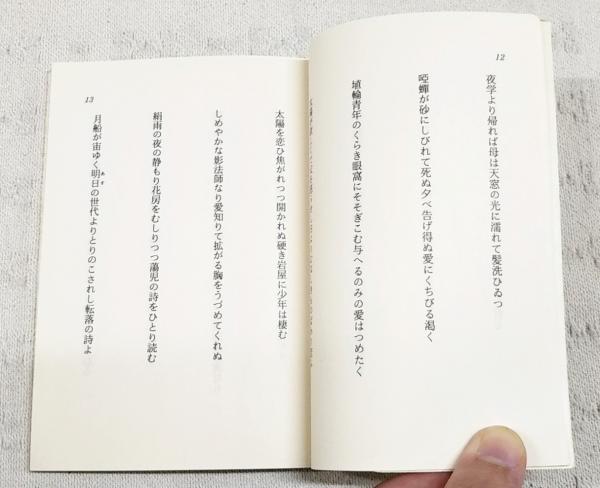 12
夜学より帰れば母は天窓の光に濡れて髪洗ひゐつ
啞蟬が砂にしびれて死ぬ夕べ告げ得ぬ愛にくちびる渇く
埴輪青年のくらき眼窩にそそぎこむ与へるのみの愛はつめたく
太陽を恋ひ焦がれつつ開かれぬ硬き岩屋に少年は棲む
しめやかな影法師なり愛知りて拡がる胸をうづめてくれぬ
絹雨の夜の静もり花房をむしりつつ蕩児の詩をひとり読む
月船が宙ゆく明日の世代よりとりのこされし転落の詩よ
あす
13